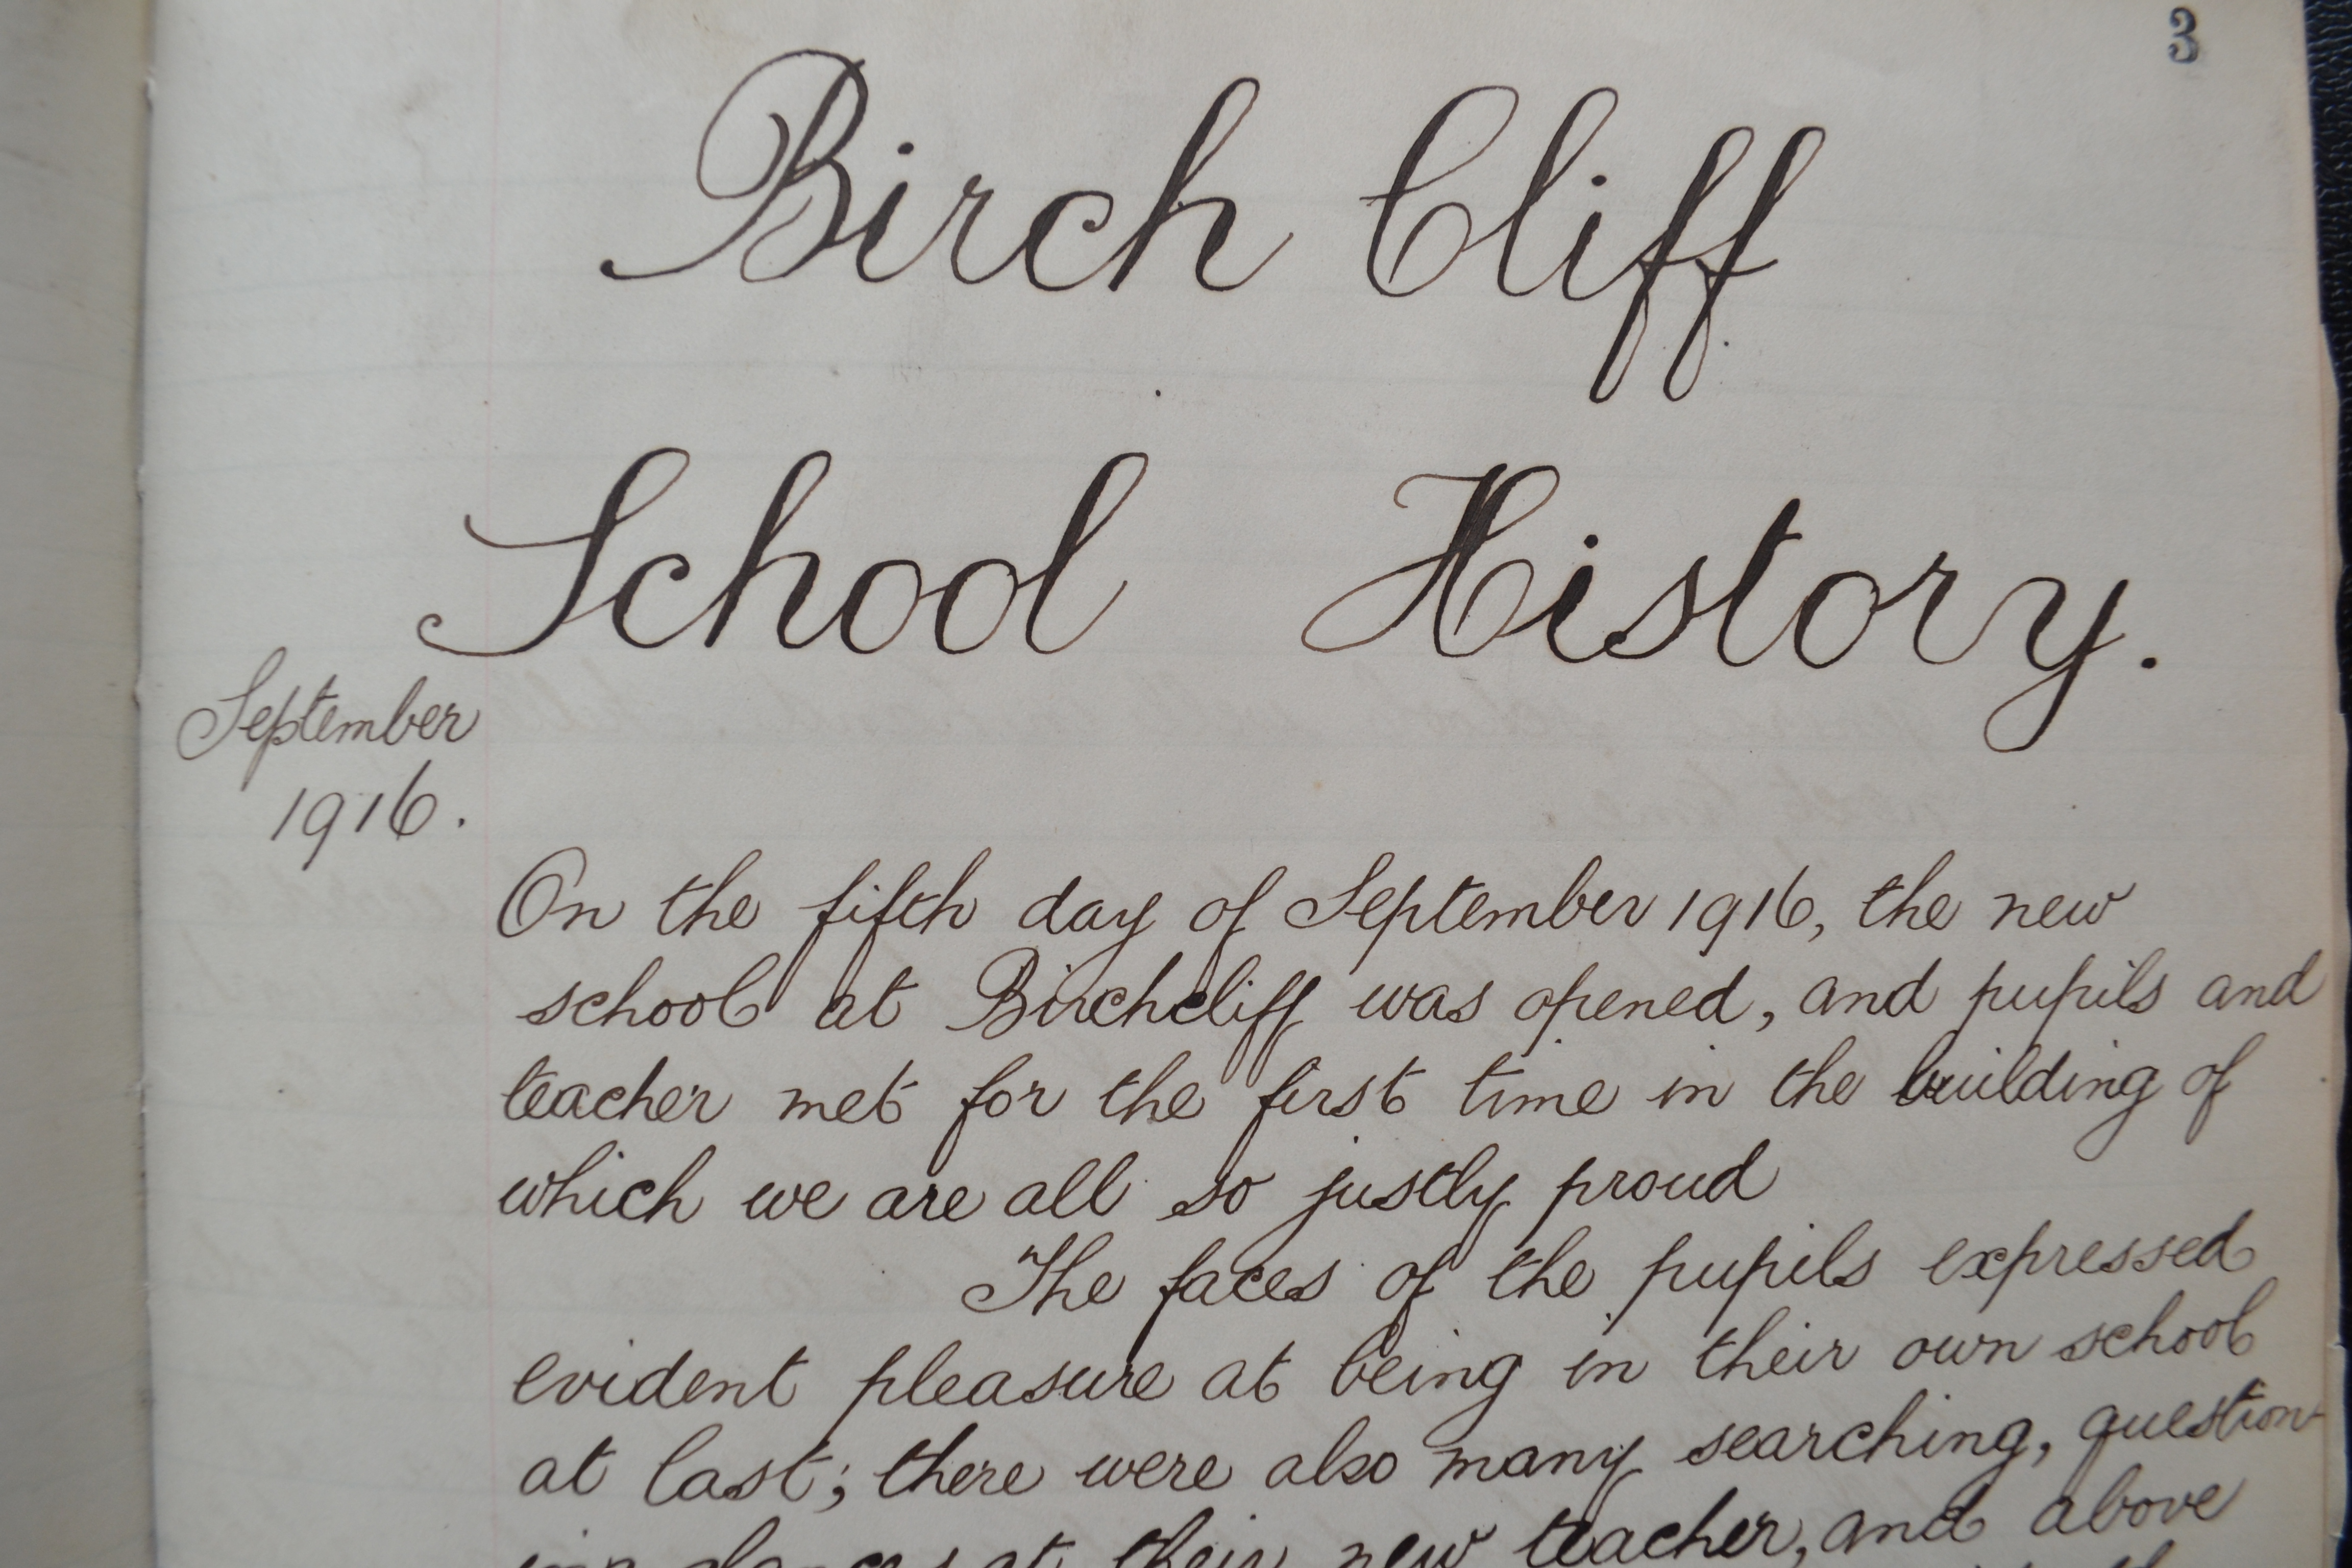 3
Birch Cliff
School History.
September
1916.
On the fifth day of September 1916, the new
school at Birchcliff was opened, and pupils and
teacher met for the first time in the building of
which we are all so justly proud
The faces of the pupils expressed
evident pleasure at being in their own school
at last; there were also many searching, question-
ing glances at their new teacher, and above